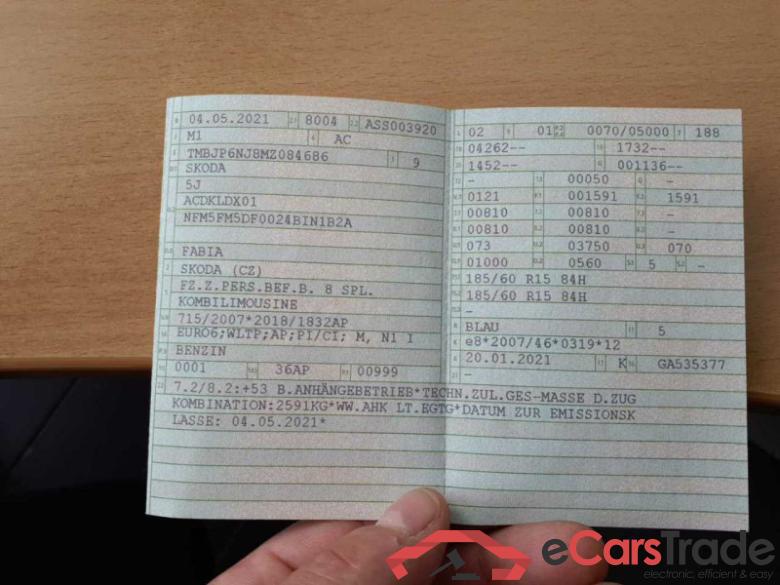 04.05.2021 8004 ASS003920
M1 AC
TMBJP6NJ8MZ084686 9
SKODA
5J
ACDKLDX01
NFM5FM5DF0024BIN1B2A
FABIA
SKODA (CZ)
FZ.Z.PERS.BEF.B. 8 SPL.
KOMBILIMOUSINE
715/2007*2018/1832AP
EURO6;WLTP;AP;PI/CI; M, N1 I
BENZIN
0001 36AP 00999
02 01 0070/05000 188
04262-- 1732--
1452-- 001136--
- 00050 -
0121 001591 1591
00810 00810 -
00810 00810 -
073 03750 070
01000 0560 5 -
185/60 R15 84H
185/60 R15 84H
-
BLAU 5
e8*2007/46*0319*12
20.01.2021 K GA535377
-
7.2/8.2:+53 B.ANHÄNGEBETRIEB*TECHN.ZUL.GES-MASSE D.ZUG
KOMBINATION:2591KG*WW.AHK LT.EGTG*DATUM ZUR EMISSIONSK
LASSE: 04.05.2021*
eCarsTrade
electronic, efficient & easy